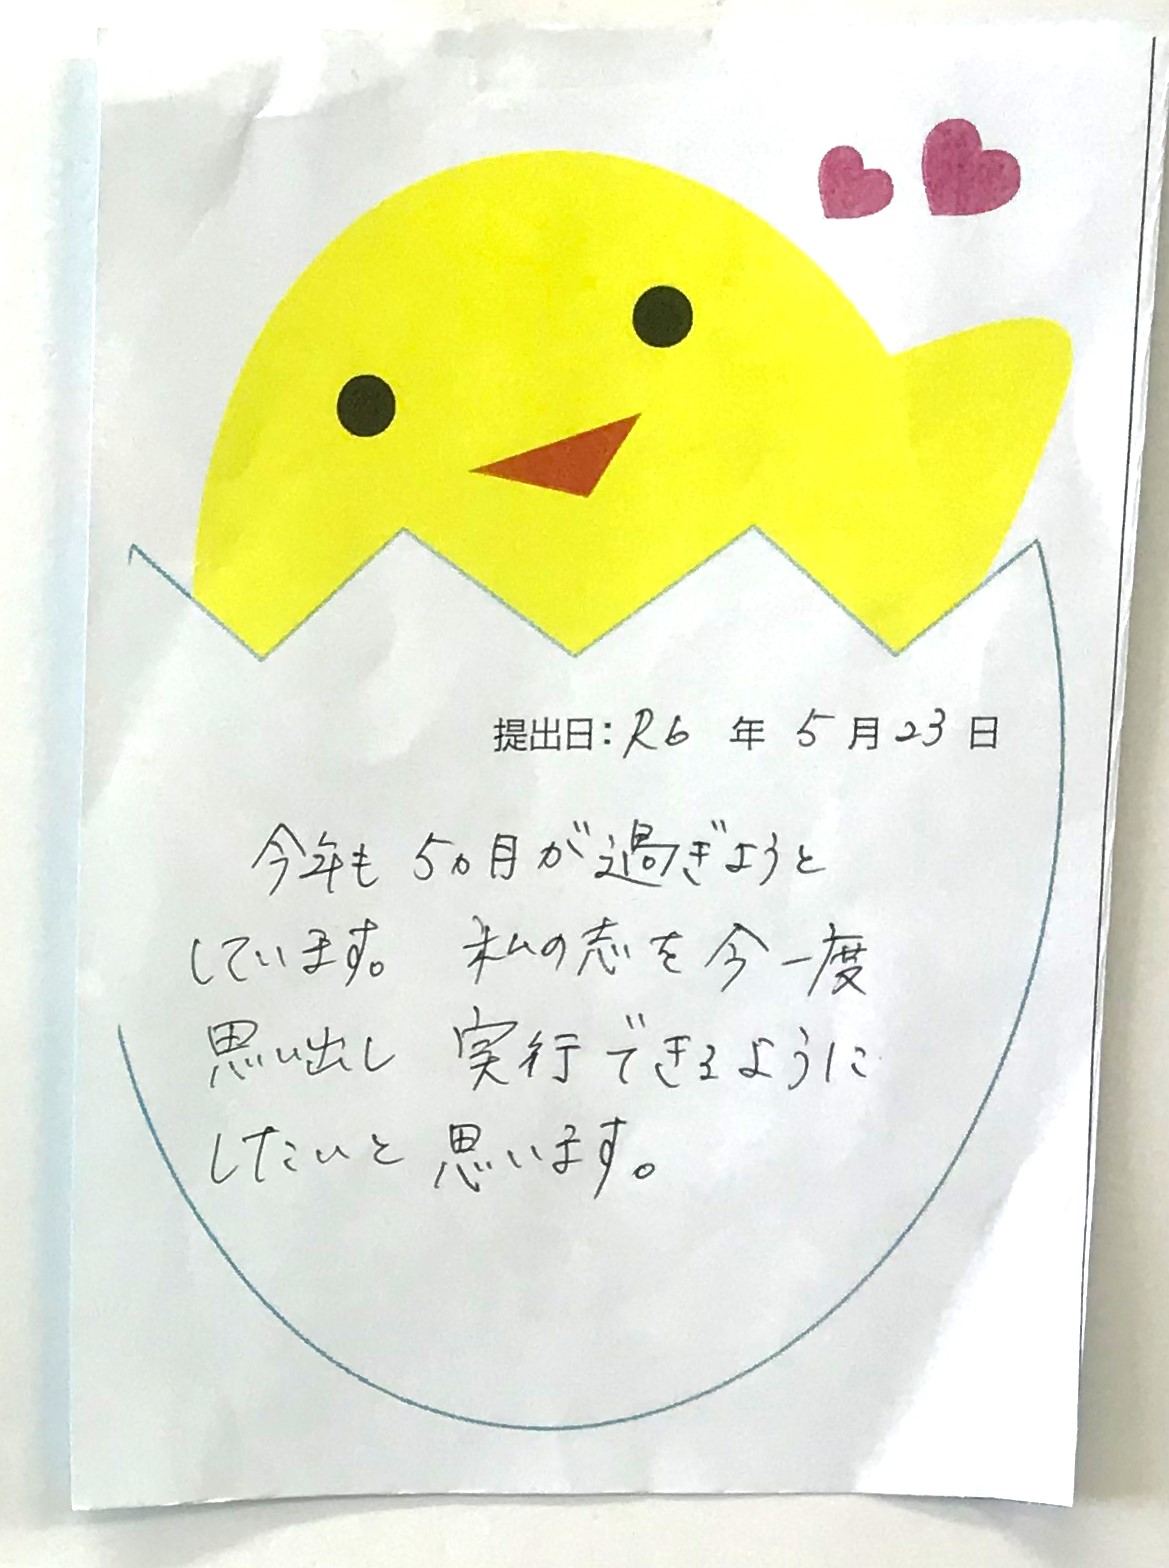 提出日：R6年5月23日
今年も5ヵ月が過ぎようと
しています。私の志を今一度
思い出し実行できるように
したいと思います。